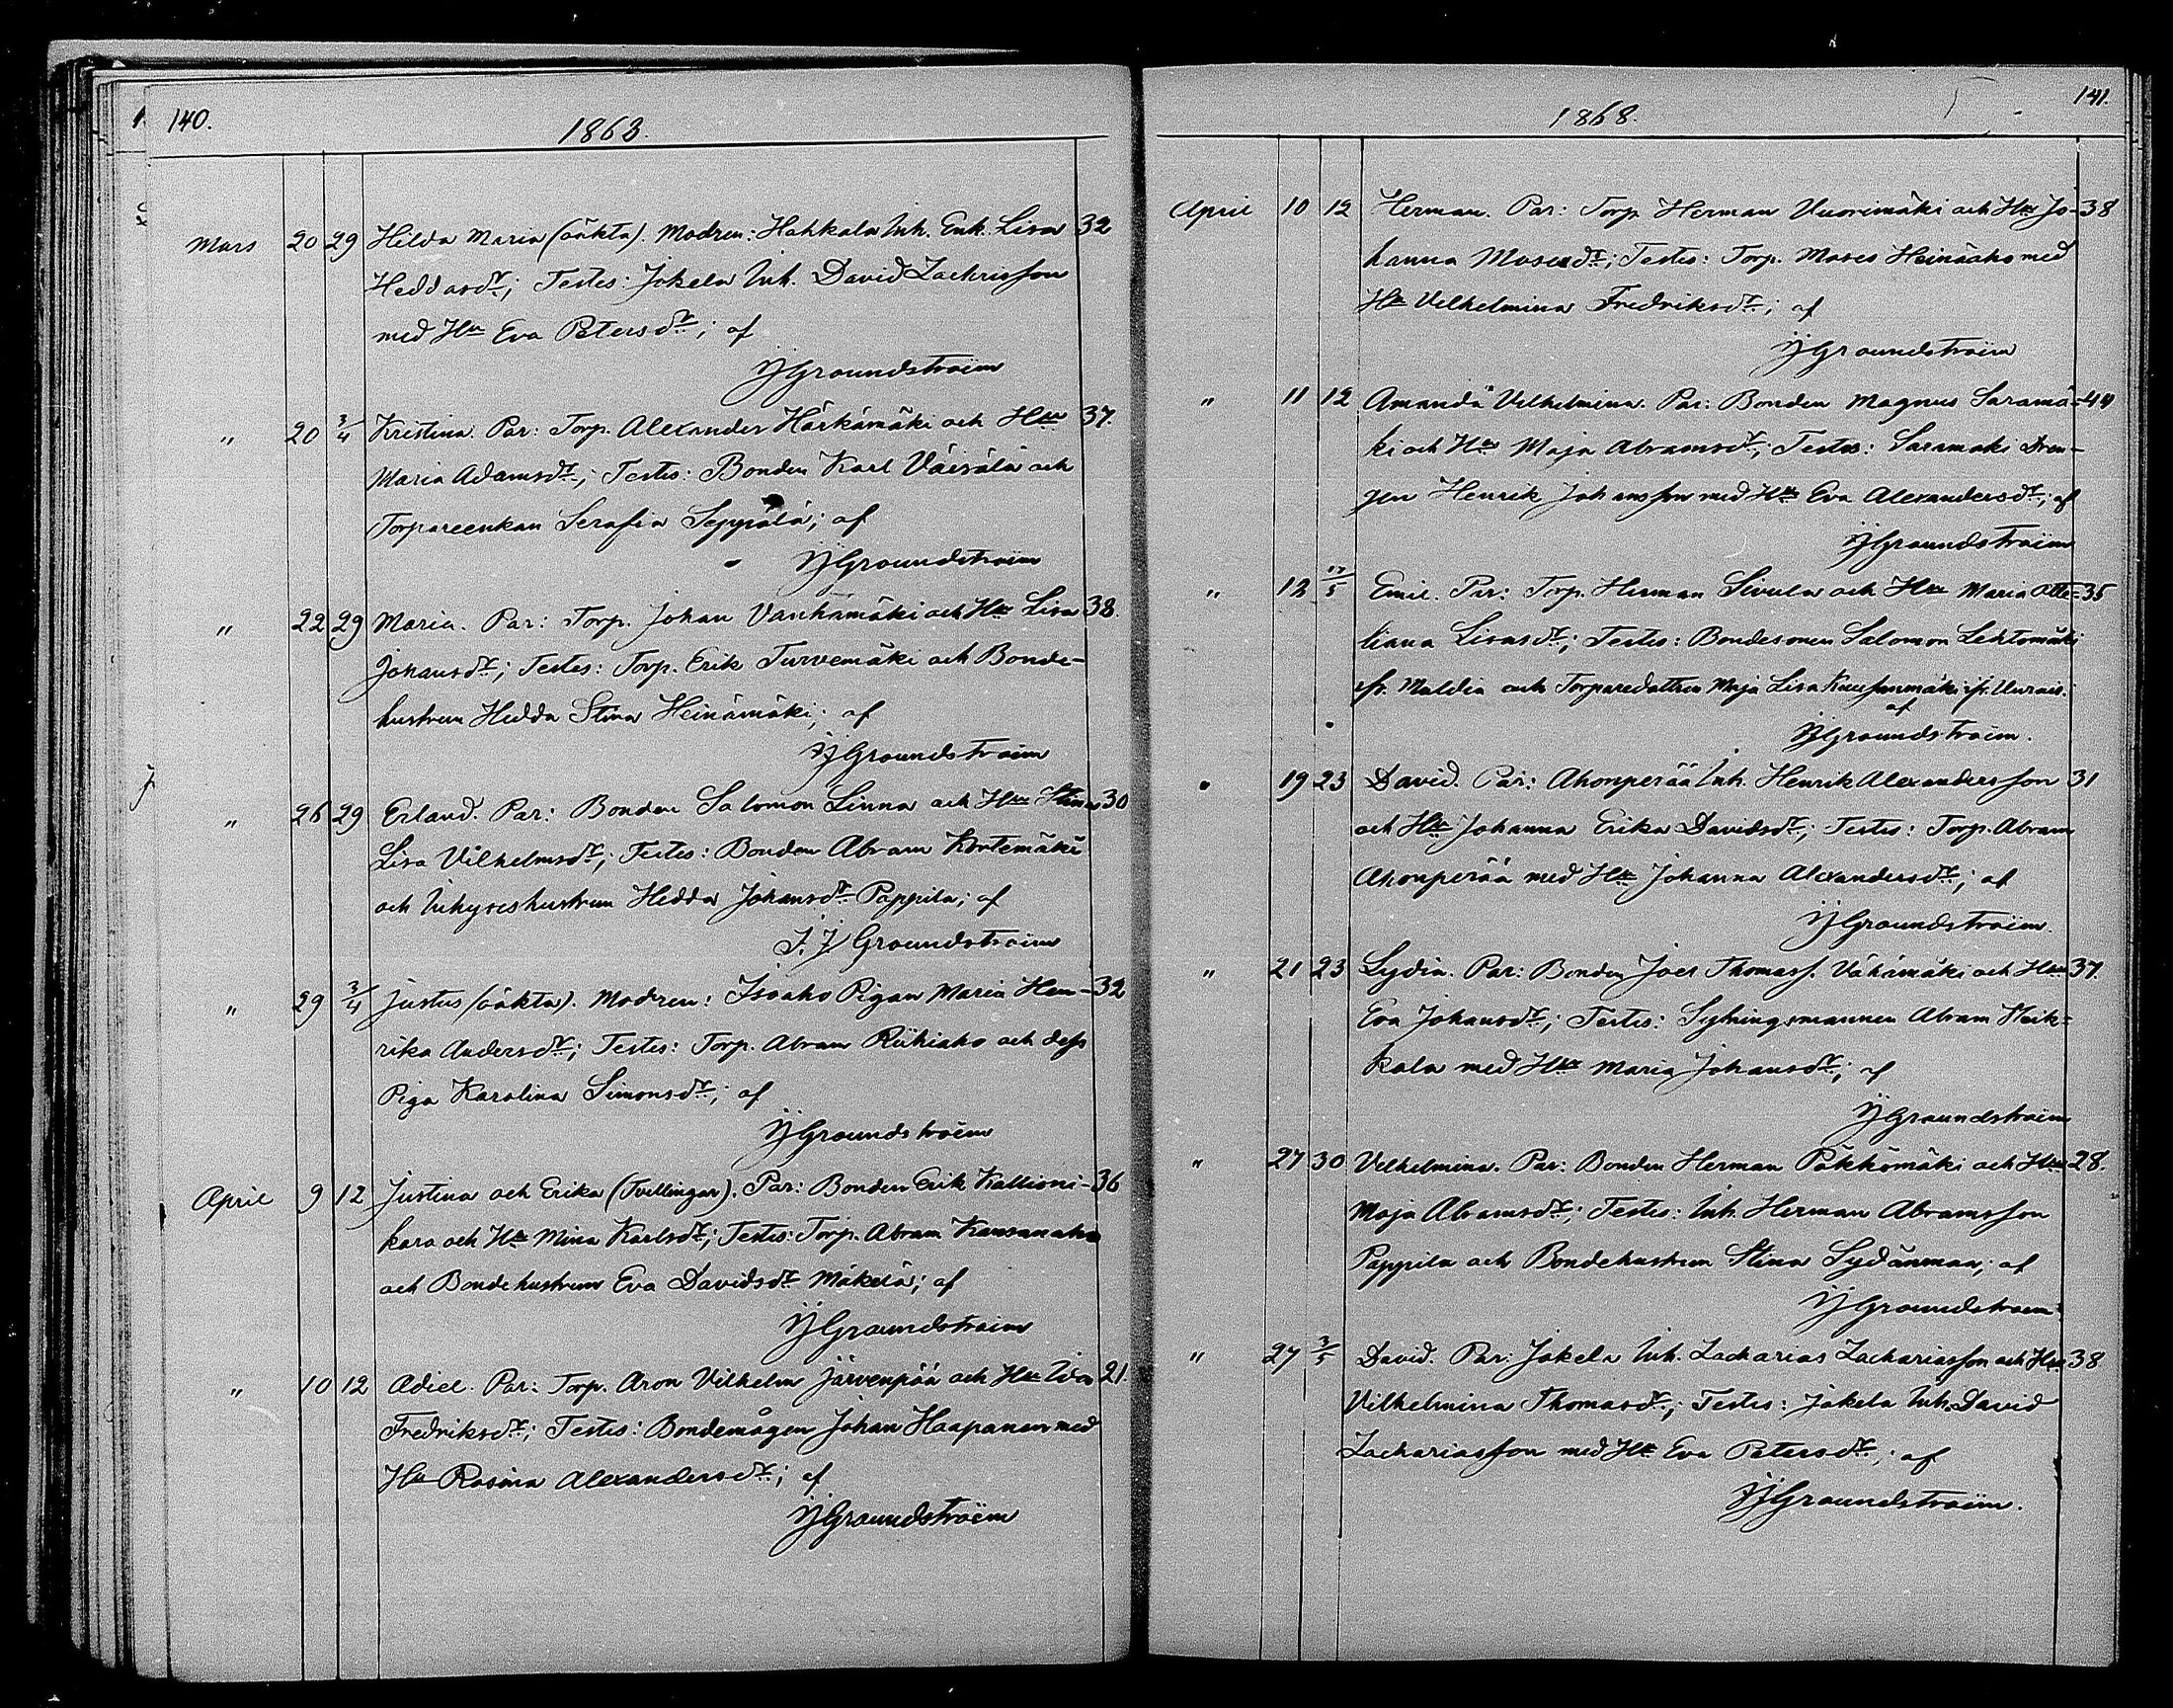 140.
1868.
Mars 20 29 Hilda Maria (oäkta). Modren: Hahkala Inh. Enk. Lisa 32
Heddasdr; Testes: Jokela Inh. David Zachrisson
med Hu Eva Petersdr; af
JJGroundstroëm
" 20 3/4 Kristina. Par: Torp. Alexander Härkämäki och Hu 37.
Maria Adamsdr; Testes: Bonden Karl Väisälä och
Torpareenkan Serafia Seppälä; af
JJGroundstroëm
" 22 29 Maria. Par: Torp. Johan Vanhamäki och Hu Lisa 38.
Johansdr; Testes: Torp. Erik Turvemäki och Bonde-
hustrun Hedda Stina Heinämäki; af
JJGroundstroëm
" 26 29 Erland. Par: Bonden Salomon Linna och Hu Stina 30
Lisa Vilhelmsdr; Testes: Bonden Abram Kortemäki
och Inhyseshustrun Hedda Johansdr Pappila; af
J.J Groundstroëm
" 29 3/4 Justus (oäkta). Modren: Isoaho Pigan Maria Hen- 32
rika Andersdr; Testes: Torp. Abram Riihiaho och dess
Piga Karolina Simonsdr; af
JJGroundstroëm
April 9 12 Justina och Erika (Tvillingar). Par: Bonden Erik Kallioni- 36
kara och Hu Mina Karlsdr; Testes: Torp. Abram Kansanaho
och Bondehustrun Eva Davidsdr Mäkelä; af
JJGroundstroëm
" 10 12 Adiel. Par: Torp. Aron Vilhelm Järvenpää och Hu Ida 21.
Fredriksdr; Testes: Bondemågen Johan Haapanen med
Hu Rosina Alexandersdr; af
JJGroundstroëm
141.
1868.
April 10 12 Herman. Par: Torp Herman Vuorimäki och Hu Jo- 38
hanna Mosesdr; Testes: Torp. Moses Heinäaho med
Hu Vilhelmina Fredriksdr; af
JJGroundstroëm
" 11 12 Amanda Vilhelmina. Par: Bonden Magnus Saramä- 44
ki och Hu Maja Abramsdr; Testes: Saramäki Dren-
gen Henrik Johansson med Hu Eva Alexandersdr; af
JJGroundstroëm
" 12 17/5 Emil. Par: Torp. Herman Sivula och Hu Maria Otte- 35
liana Lisasdr; Testes: Bondesonen Salomon Lehtomäki
fr. Multia och Torparedottren Maja Lisa fr. Uurais.
af
JJGroundstroëm.
" 19 23 David. Par: Ahonperää Inh. Henrik Alexandersson 31
och Hu Johanna Erika Davidsdr; Testes: Torp. Abram
Ahonperää med Hu Johanna Alexandersdr; af
JJGroundstroëm.
" 21 23 Lydia. Par: Bonden Joel Thomass. Vähämäki och Hu 37.
Eva Johansdr; Testes: Sytningsmannen Abram Heik-
kala med Hu Maria Johansdr; af
JJGroundstroëm
" 27 30 Vilhelmina. Par: Bonden Herman Pökhömäki och Hu 28.
Maja Abramsdr; Testes: Inh. Herman Abramsson
Pappila och Bondehustrun Stina Sydänmaa; af
JJGroundstroëm
" 27 3/5 David. Par: Jokela Inh. Zacharias Zachariasson och Hu 38
Vilhelmina Thomasdr; Testes: Jokela Inh. David
Zachariasson med Hu Eva Petersdr; af
JJGroundstroëm.